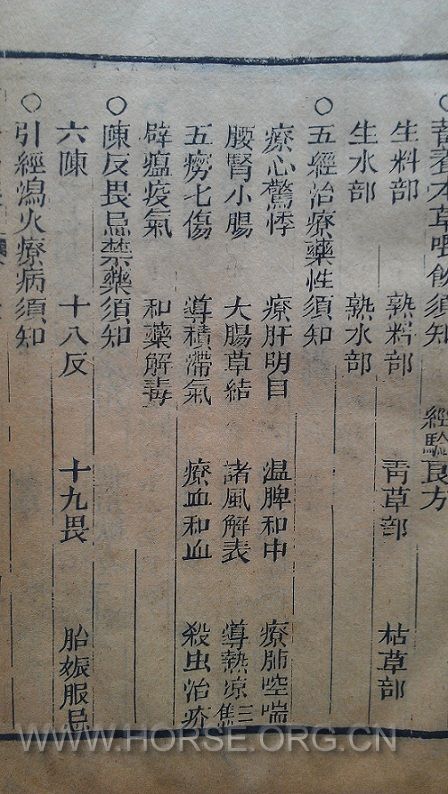 ○蓄養水草喂飲須知 經驗良方
生料部 熟料部 靑草部 枯草部
生水部 熟水部
○五經治療藥性須知
療心驚悸 療肝明目 温脾和中 療肺啌喘
腰腎小腸 大腸草結 諸風解表 導熱凉三焦
五癆七傷 導積滯氣 療血和血 殺虫治疥
辟瘟疫氣 和藥解毒
○陳反畏忌禁藥須知
六陳 十八反 十九畏 胎娠服忌
○引經瀉火療病須知
WWW.HORSE.ORG.CN